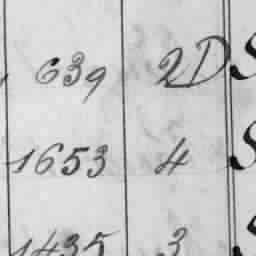 639 2D S
1653 4 S
1435 3 S